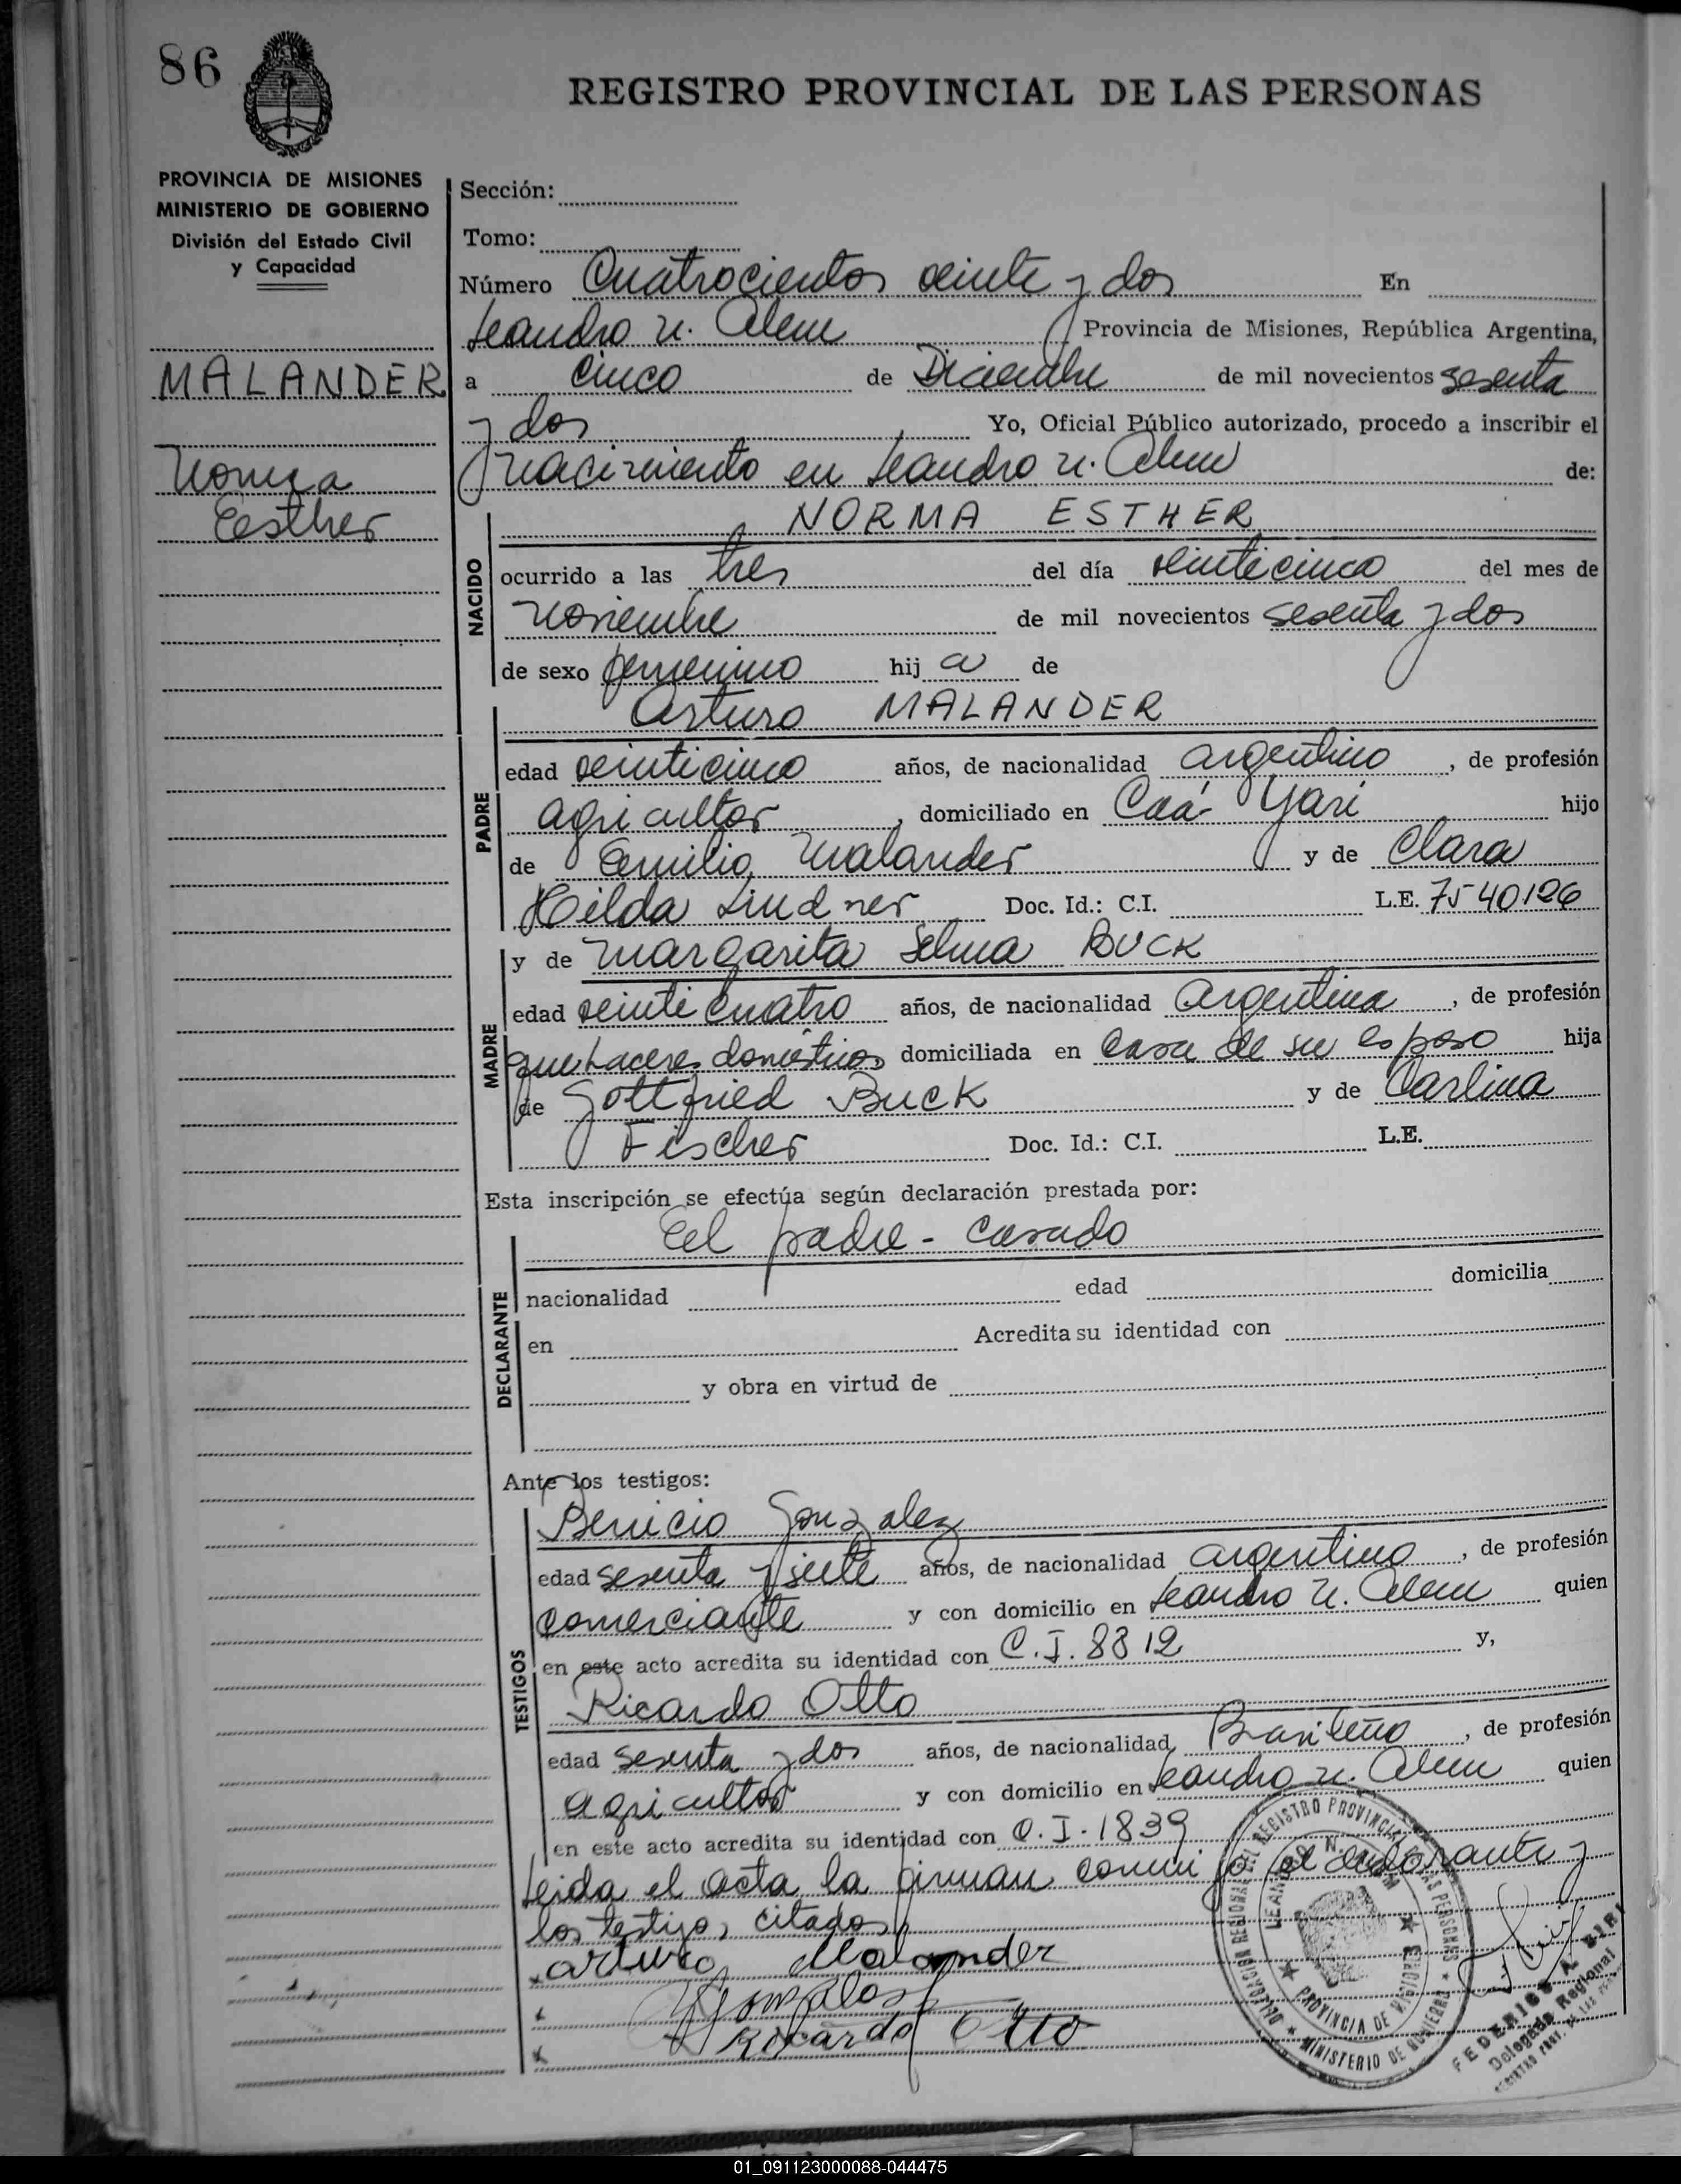 86
REGISTRO PROVINCIAL DE LAS PERSONAS
PROVINCIA DE MISIONES
MINISTERIO DE GOBIERNO
División del Estado Civil
y Capacidad
MALANDER
Norma
Esther
Sección:
Tomo:
Número Cuatrocientos veinte y dos En
Leandro N. Alem Provincia de Misiones, República Argentina,
a cinco de Diciembre de mil novecientos sesenta
y dos Yo, Oficial Público autorizado, procedo a inscribir el
nacimiento en Leandro N. Alem de:
NORMA ESTHER
NACIDO
ocurrido a las tres del día veinticinco del mes de
noviembre de mil novecientos sesenta y dos
de sexo femenino hij a de
Arturo MALANDER
PADRE
edad veinticinco años, de nacionalidad argentino, de profesión
agricultor, domiciliado en Caá-Yarí hijo
de Emilio Malander y de Clara
Hilda Lindner Doc. Id.: C.I. L.E. 7540126
y de Margarita Selma BUCK
MADRE
edad veinticuatro años, de nacionalidad argentina, de profesión
quehaceres domésticos domiciliada en casa de su esposo hija
de Gottfried Buck y de Carlina
Fischer Doc. Id.: C.I. L.E.
Esta inscripción se efectúa según declaración prestada por:
El padre - casado
DECLARANTE
nacionalidad edad domicilia
en Acredita su identidad con
y obra en virtud de
Ante los testigos:
Benicio Gonzalez
TESTIGOS
edad sesenta y siete años, de nacionalidad argentino, de profesión
comerciante y con domicilio en Leandro N. Alem quien
en este acto acredita su identidad con C.I. 8812 y,
Ricardo Otto
edad sesenta y dos años, de nacionalidad Brasileño, de profesión
agricultor y con domicilio en Leandro N. Alem quien
en este acto acredita su identidad con C.I. 1839
Leida el acta la firman conmigo el declarante y
los testigos citados
Arturo Malander
Ricardo Otto
REGISTRO PROVINCIAL DE LAS PERSONAS
DELEGACION REGIONAL
LEANDRO N. ALEM
PROVINCIA DE MISIONES
MINISTERIO DE GOBIERNO
FEDERICO A.
Delegado Regional
01_091123000088-044475